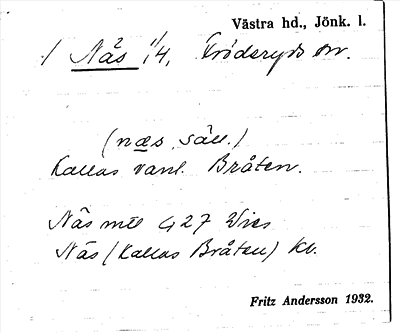 Västra hd., Jönk. l.
/ Näs 2 1/4, Fröderyds sn.
(næs, säll.)
Kallas vanl. Bråten.
Näs mtl 427 Wies
Näs (Kallas Bråten) Kb.
Fritz Andersson 1932.